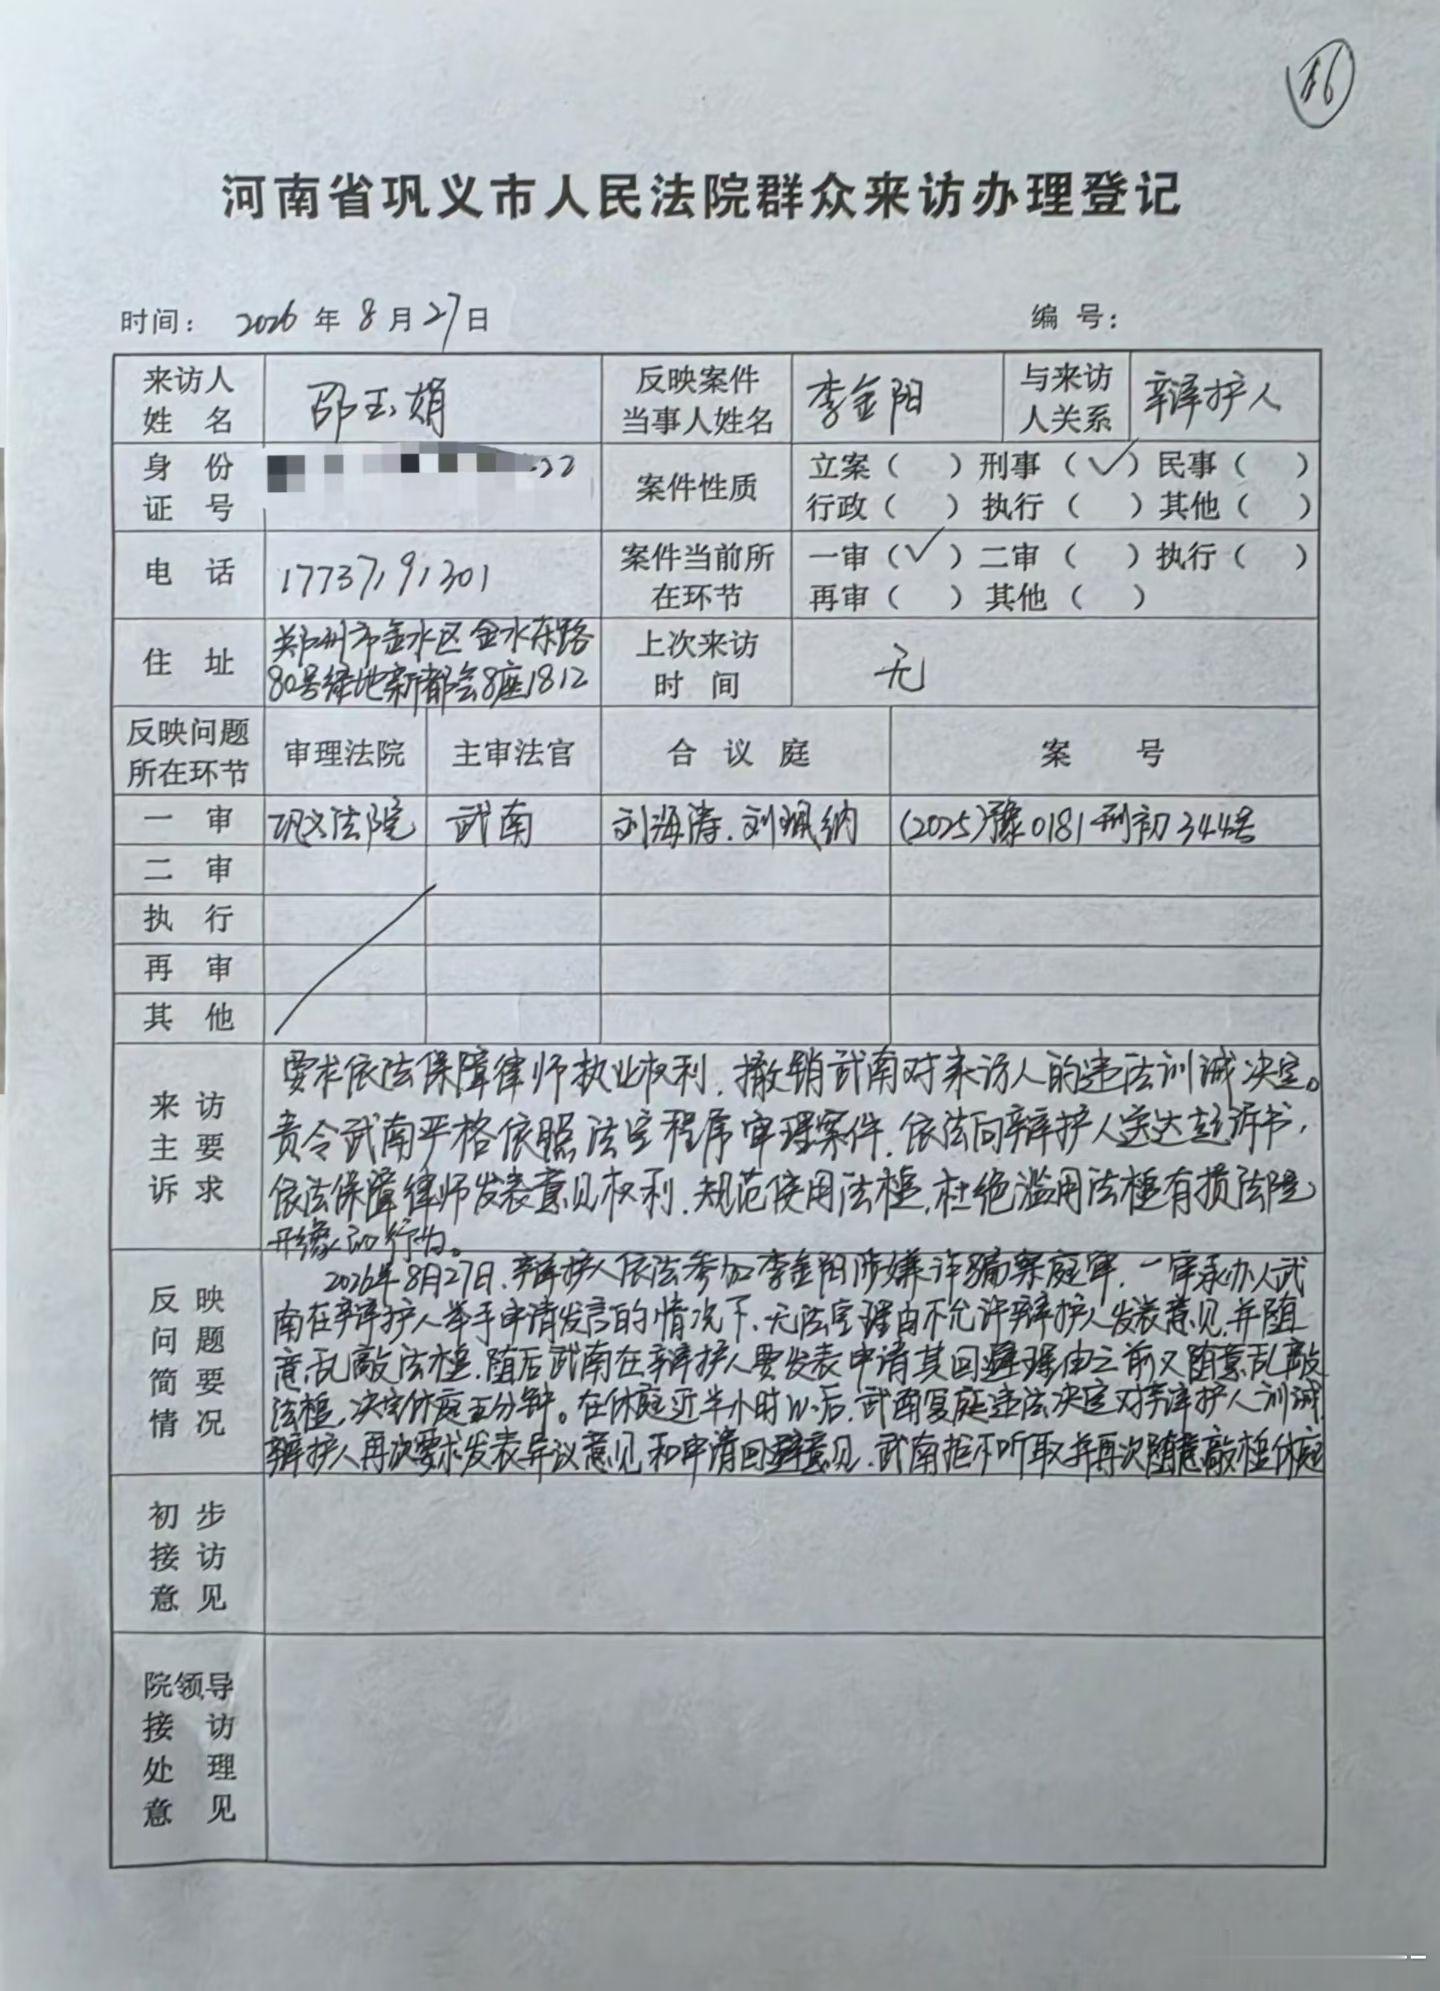 河南省巩义市人民法院群众来访办理登记
时间： 2026年8月27日 编号：
来访人姓名 邵玉娟 反映案件当事人姓名 李金阳 与来访人关系 辩护人
身份证号 22 案件性质 立案（ ）刑事（✓）民事（ ）
行政（ ）执行（ ）其他（ ）
电话 17737191301 案件当前所在环节 一审（✓）二审（ ）执行（ ）
再审（ ）其他（ ）
住址 郑州市金水区金水东路
80号绿地新都会8座1812 上次来访时间 无
反映问题所在环节 审理法院 主审法官 合议庭 案号
一审 巩义法院 武南 刘海涛、刘佩纳 (2025)豫0181刑初344号
二审
执行
再审
其他
来访主要诉求 要求依法保障律师执业权利，撤销武南对来访人的违法训诫决定。
责令武南严格依照法定程序审理案件，依法向辩护人送达起诉书，
依法保障律师发表意见权利，规范使用法槌，杜绝滥用法槌有损法院
形象的行为。
反映问题简要情况 2026年8月27日，辩护人依法参加李金阳涉嫌诈骗案庭审，一审承办人武
南在辩护人举手申请发言的情况下，无法定理由不允许辩护人发表意见，并随
意乱敲法槌，随后武南在辩护人要发表申请其回避理由之前又随意乱敲
法槌，决定休庭五分钟。在休庭近半小时以后，武南复庭违法决定对辩护人训诫，
辩护人再次要求发表异议意见和申请回避意见，武南拒不听取并再次随意敲槌休庭
初步接访意见
院领导接访处理意见